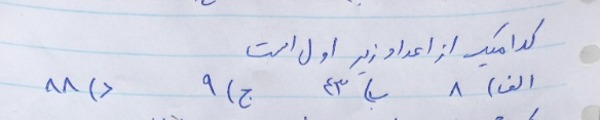 کدامیک از اعداد زیر اول است
الف) ۸ ب) ۴۳ ج) ۹ د) ۸۸